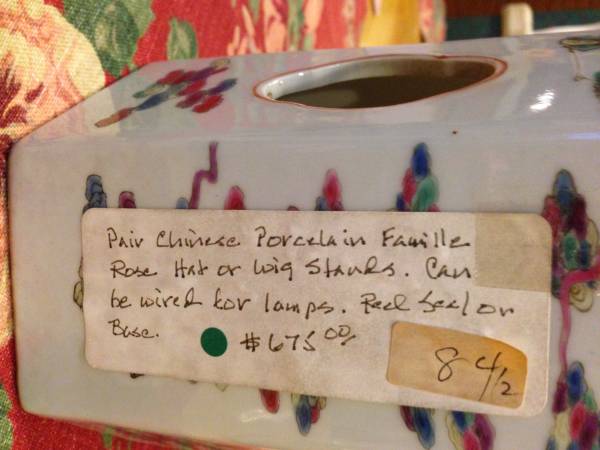 Pair Chinese Porcelain Famille
Rose Hat or Wig Stands. Can
be wired for lamps. Red Seal on
Base.
$675.00
8 4/2